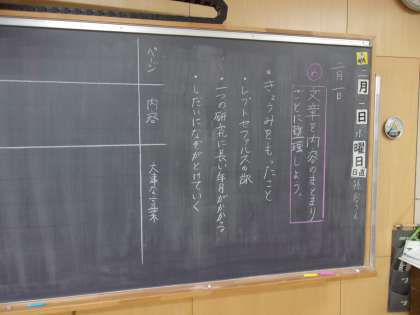 二月一日 水曜日
日直
二月一日
め 文章を内容のまとまり
ごとに整理しよう。
・きょうみをもったこと
・レプトセファルスの
・一つの研究に長い年月がかかる
・したいになぞがとけていく
ページ
内容
大事な言葉